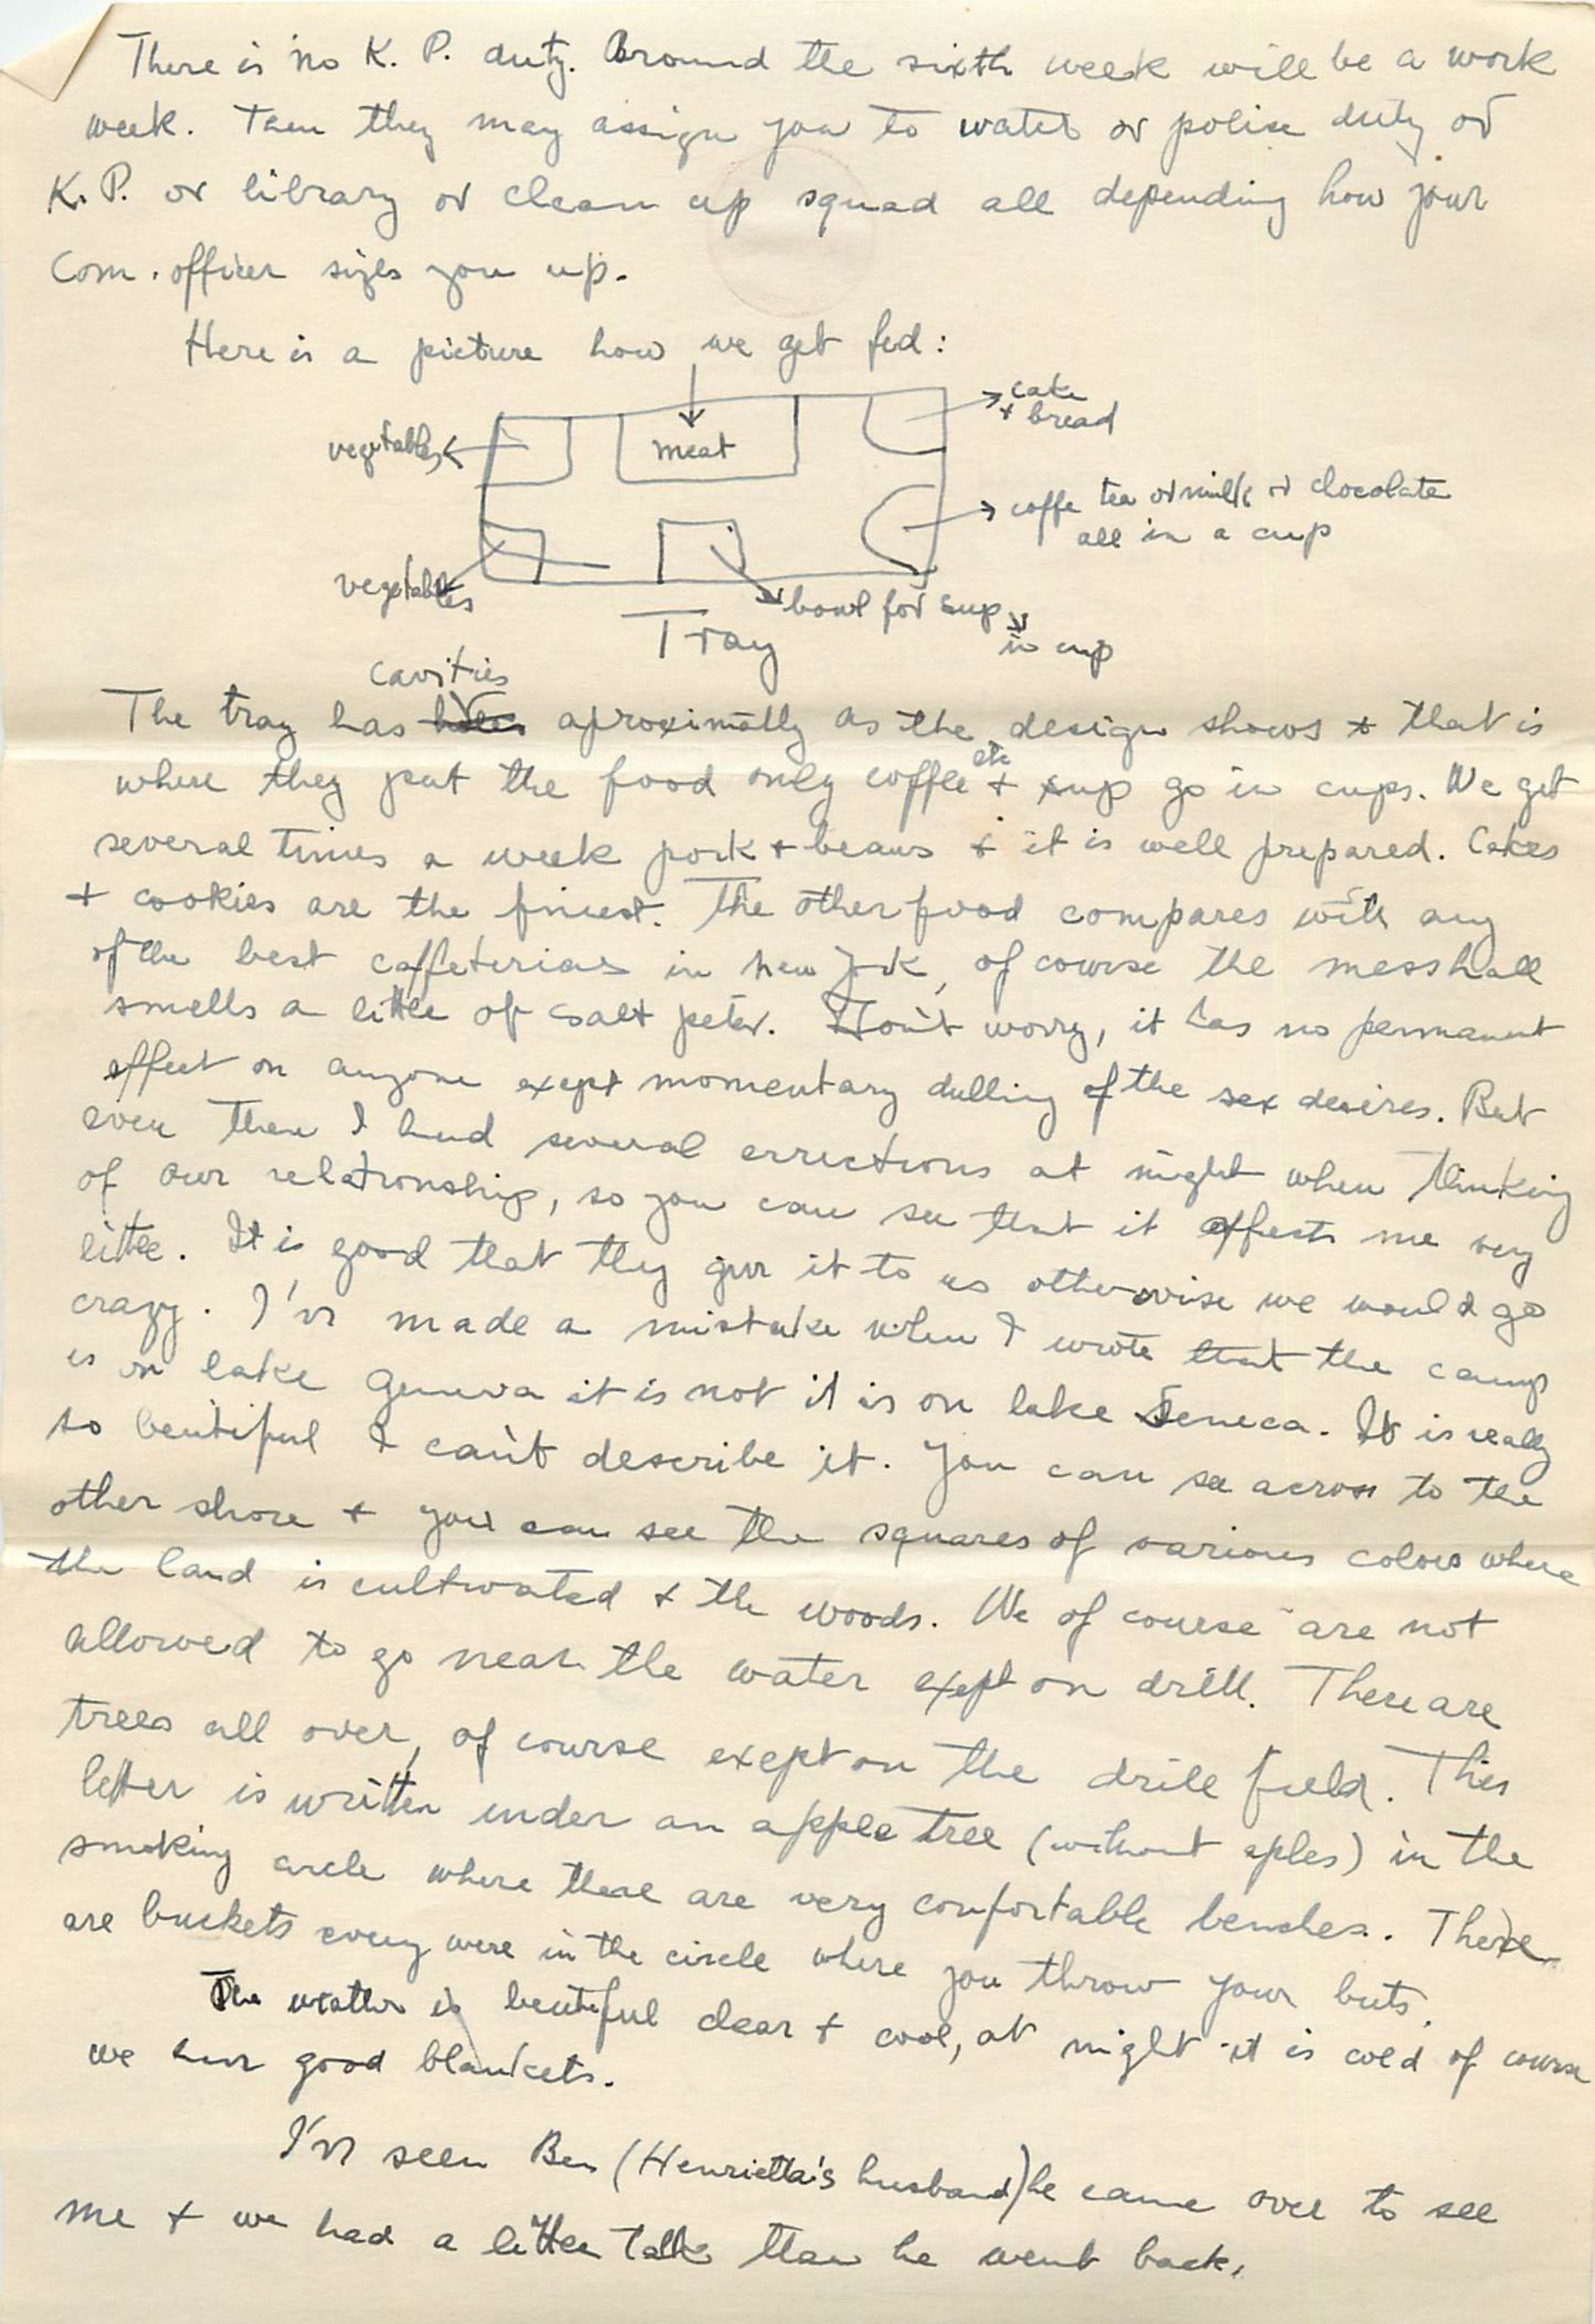 There is no K. P. duty. Around the sixth week will be a work
week. Then they may assign you to water or police duty or
K. P. or library or clean up squad all depending how your
Com. officer sizes you up.
Here is a picture how we get fed:
cake
+ bread
vegetables
meat
coffe tea or milk or chocolate
all in a cup
vegetables
bowl for sup
in cup
Tray
cavities
The tray has holes aproximatly as the design shows + that is
etc
where they put the food only coffee + sup go in cups. We get
several times a week pork + beans + it is well prepared. Cakes
+ cookies are the finest. The other food compares with any
of the best caffeterias in new York, of course the messhall
smells a little of salt peter. Don't worry, it has no permanent
effect on anyone exept momentary dulling of the sex desires. But
even then I had several errections at night when thinking
of our relationship, so you can see that it effects me very
little. It is good that they give it to us otherwise we would go
crazy. I've made a mistake when I wrote that the camp
is on lake Geneva it is not it is on lake Seneca. It is really
so beutiful I can't describe it. You can see across to the
other shore + you can see the squares of various colors where
the land is cultivated + the woods. We of course are not
allowed to go near the water exept on drill. There are
trees all over, of course exept on the drill field. This
letter is written under an apple tree (without aples) in the
smoking circle where there are very confortable benches. There
are buckets every were in the circle where you throw your buts.
The weather is beutiful clear + cool, at night it is cold of course
we have good blankets.
I've seen Ben (Henrietta's husband) he came over to see
me + we had a little talk than he went back.